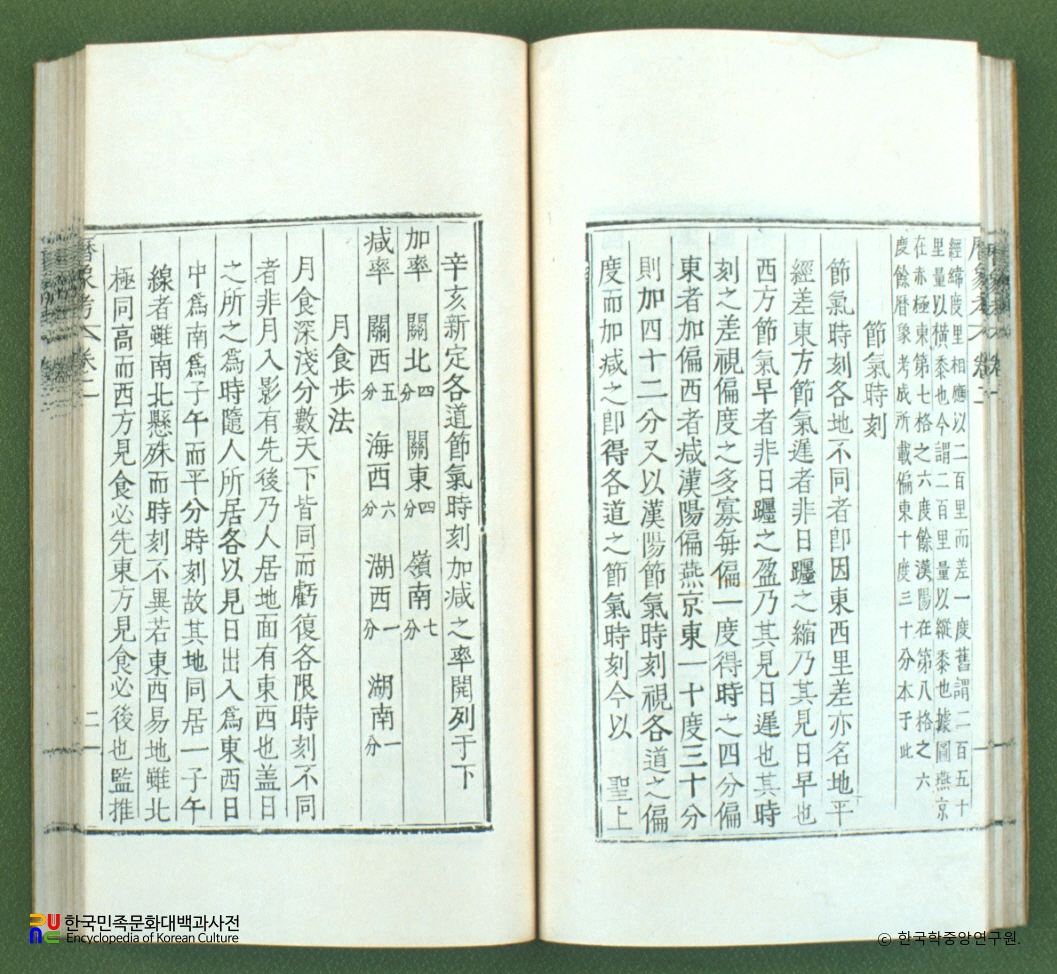 經緯度里相應以二百里而差一度舊謂二百五十
里量以橫黍也今謂二百里量以縱黍也據圖燕京
在赤極東第七格之六度餘漢陽在第八格之六
度餘曆象考成所載偏東十度三十分本于此
節氣時刻
節氣時刻各地不同者卽因東西里差亦名地平
經差東方節氣遲者非日躔之縮乃其見日早也
西方節氣早者非日躔之盈乃其見日遲也其時
刻之差視偏度之多寡每偏一度得時之四分偏
東者加偏西者减漢陽偏燕京東一十度三十分
則加四十二分又以漢陽節氣時刻視各道之偏
度而加减之卽得各道之節氣時刻今以 聖上
辛亥新定各道節氣時刻加减之率開列于下
加率 關北四分 關東四分 嶺南七分
减率 關西五分 海西六分 湖西一分 湖南一分
月食步法
月食深淺分數天下皆同而虧復各限時刻不同
者非月入影有先後乃人居地面有東西也盖日
之所之爲時隨人所居各以見日出入爲東西日
中爲南爲子午而平分時刻故其地同居一子午
線者雖南北懸殊而時刻不異若東西易地雖北
極同高而西方見食必先東方見食必後也監推
曆象考 卷二 二
한국민족문화대백과사전
Encyclopedia of Korean Culture
ⓒ 한국학중앙연구원.